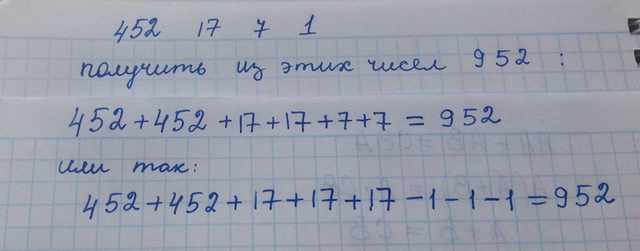 452 17 7 1
получить из этих чисел 952 :
452+452+17+17+7+7 = 952
или так:
452+452+17+17+17-1-1-1=952